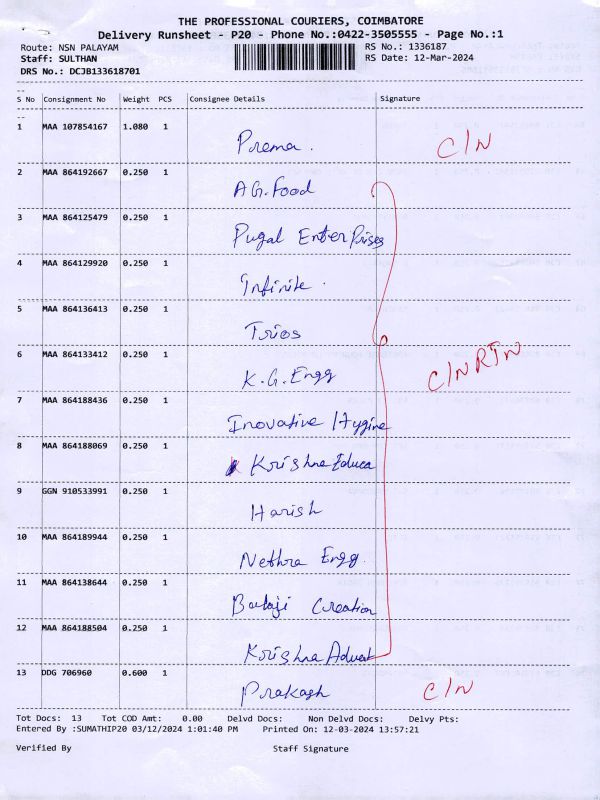 THE PROFESSIONAL COURIERS, COIMBATORE
Delivery Runsheet - P20 - Phone No.:0422-3505555 - Page No.:1
Route: NSN PALAYAM RS No.: 1336187
Staff: SULTHAN RS Date: 12-Mar-2024
DRS No.: DCJB133618701
S No Consignment No Weight PCS Consignee Details Signature
1 MAA 107854167 1.080 1 Prema. C/N
2 MAA 864192667 0.250 1 A.G.Food
3 MAA 864125479 0.250 1 Pugal EnterPrises
4 MAA 864129920 0.250 1 Infinite.
5 MAA 864136413 0.250 1 Trios
6 MAA 864133412 0.250 1 K.G.Engg C/N RTN
7 MAA 864188436 0.250 1 Inovative Hygine
8 MAA 864188069 0.250 1 Krishna Educa
9 GGN 910533991 0.250 1 Harish
10 MAA 864189944 0.250 1 Nethra Engg.
11 MAA 864138644 0.250 1 Balaji Creation
12 MAA 864188504 0.250 1 Krishna Advat
13 DDG 706960 0.600 1 Prakash C/N
Tot Docs: 13 Tot COD Amt: 0.00 Delvd Docs: Non Delvd Docs: Delvy Pts:
Entered By :SUMATHIP20 03/12/2024 1:01:40 PM Printed On: 12-03-2024 13:57:21
Verified By Staff Signature